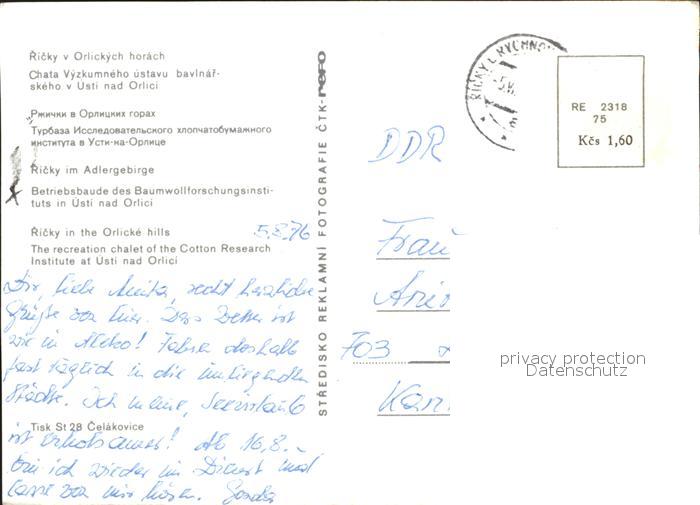 Říčky v Orlických horách
Chata Výzkumného ústavu bavlnář-
ského v Ústí nad Orlicí
Ржички в Орлицких горах
Турбаза Исследовательского хлопчатобумажного
института в Усти-на-Орлице
Říčky im Adlergebirge
Betriebsbaude des Baumwollforschungsinsti-
tuts in Ústí nad Orlicí
Říčky in the Orlické hills
The recreation chalet of the Cotton Research
Institute at Ústí nad Orlicí
5.8.76
Dir, liebe Anika, recht herzliche
Grüße von hier. Das Wetter ist
wie in
fast täglich in die umliegenden
Städte. Ich meine, Seeurlaub
Tisk St 28 Čelákovice
ist erholsamer! Ab 16.8.
bin ich wieder im Dienst und
lasse von mir hören.
STŘEDISKO REKLAMNÍ FOTOGRAFIE ČTK-REFO
ŘÍČKY
RE 2318
75
Kčs 1,60
DDR
Frau
703
privacy protection
Datenschutz